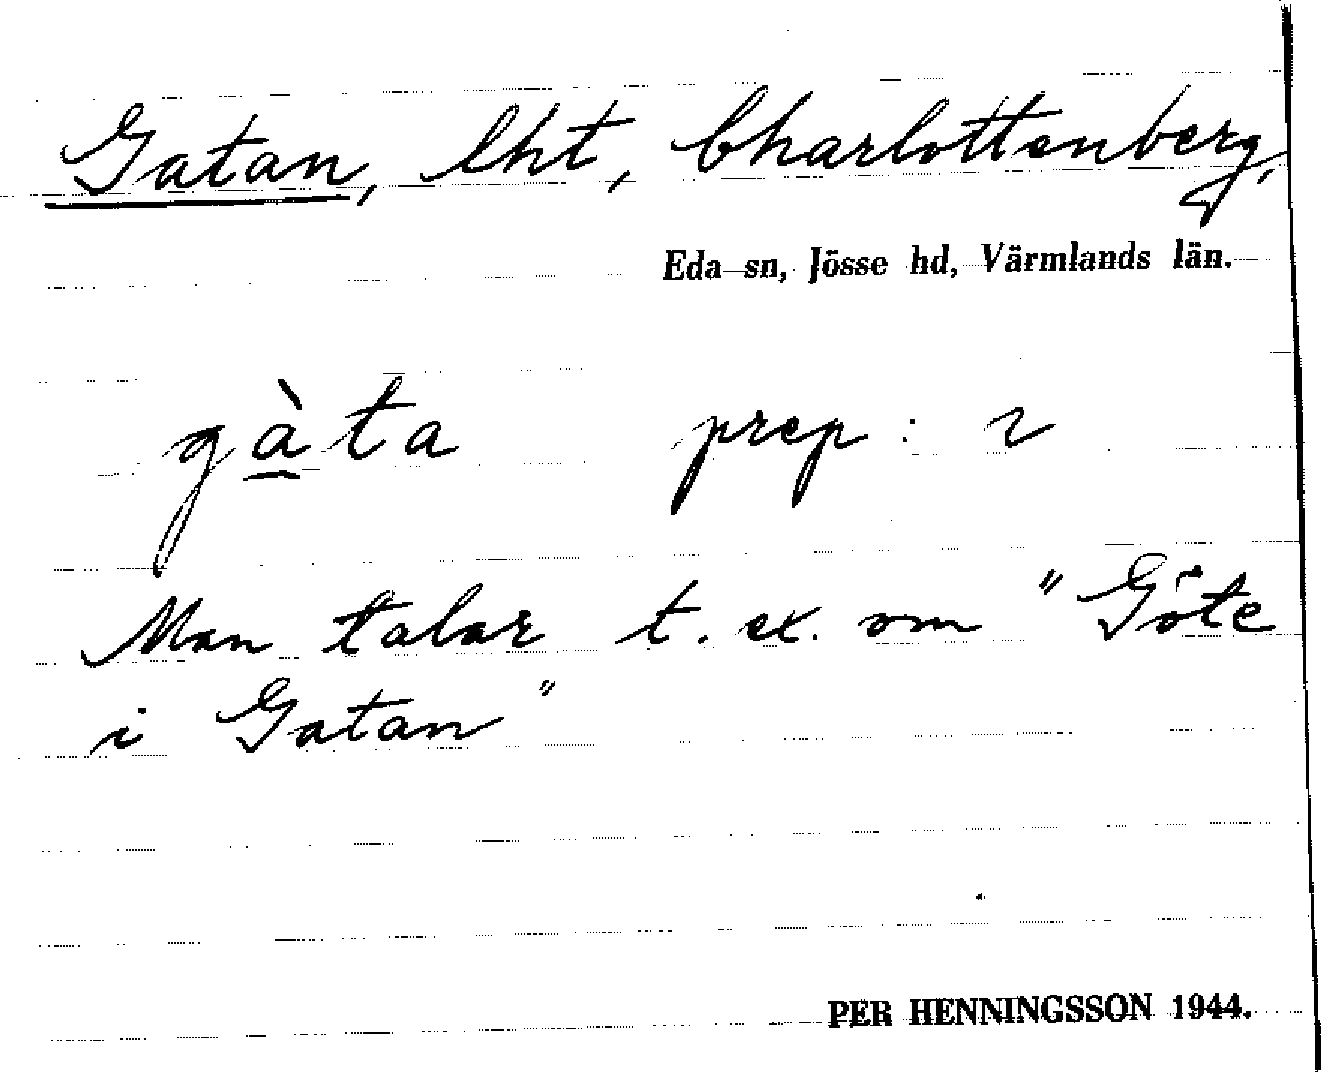 Gatan, lht, Charlottenberg,
Eda sn, Jösse hd, Värmlands län.
gàta prep: ɩ
Man talar t. ex. om "Göte
i Gatan"
PER HENNINGSSON 1944.